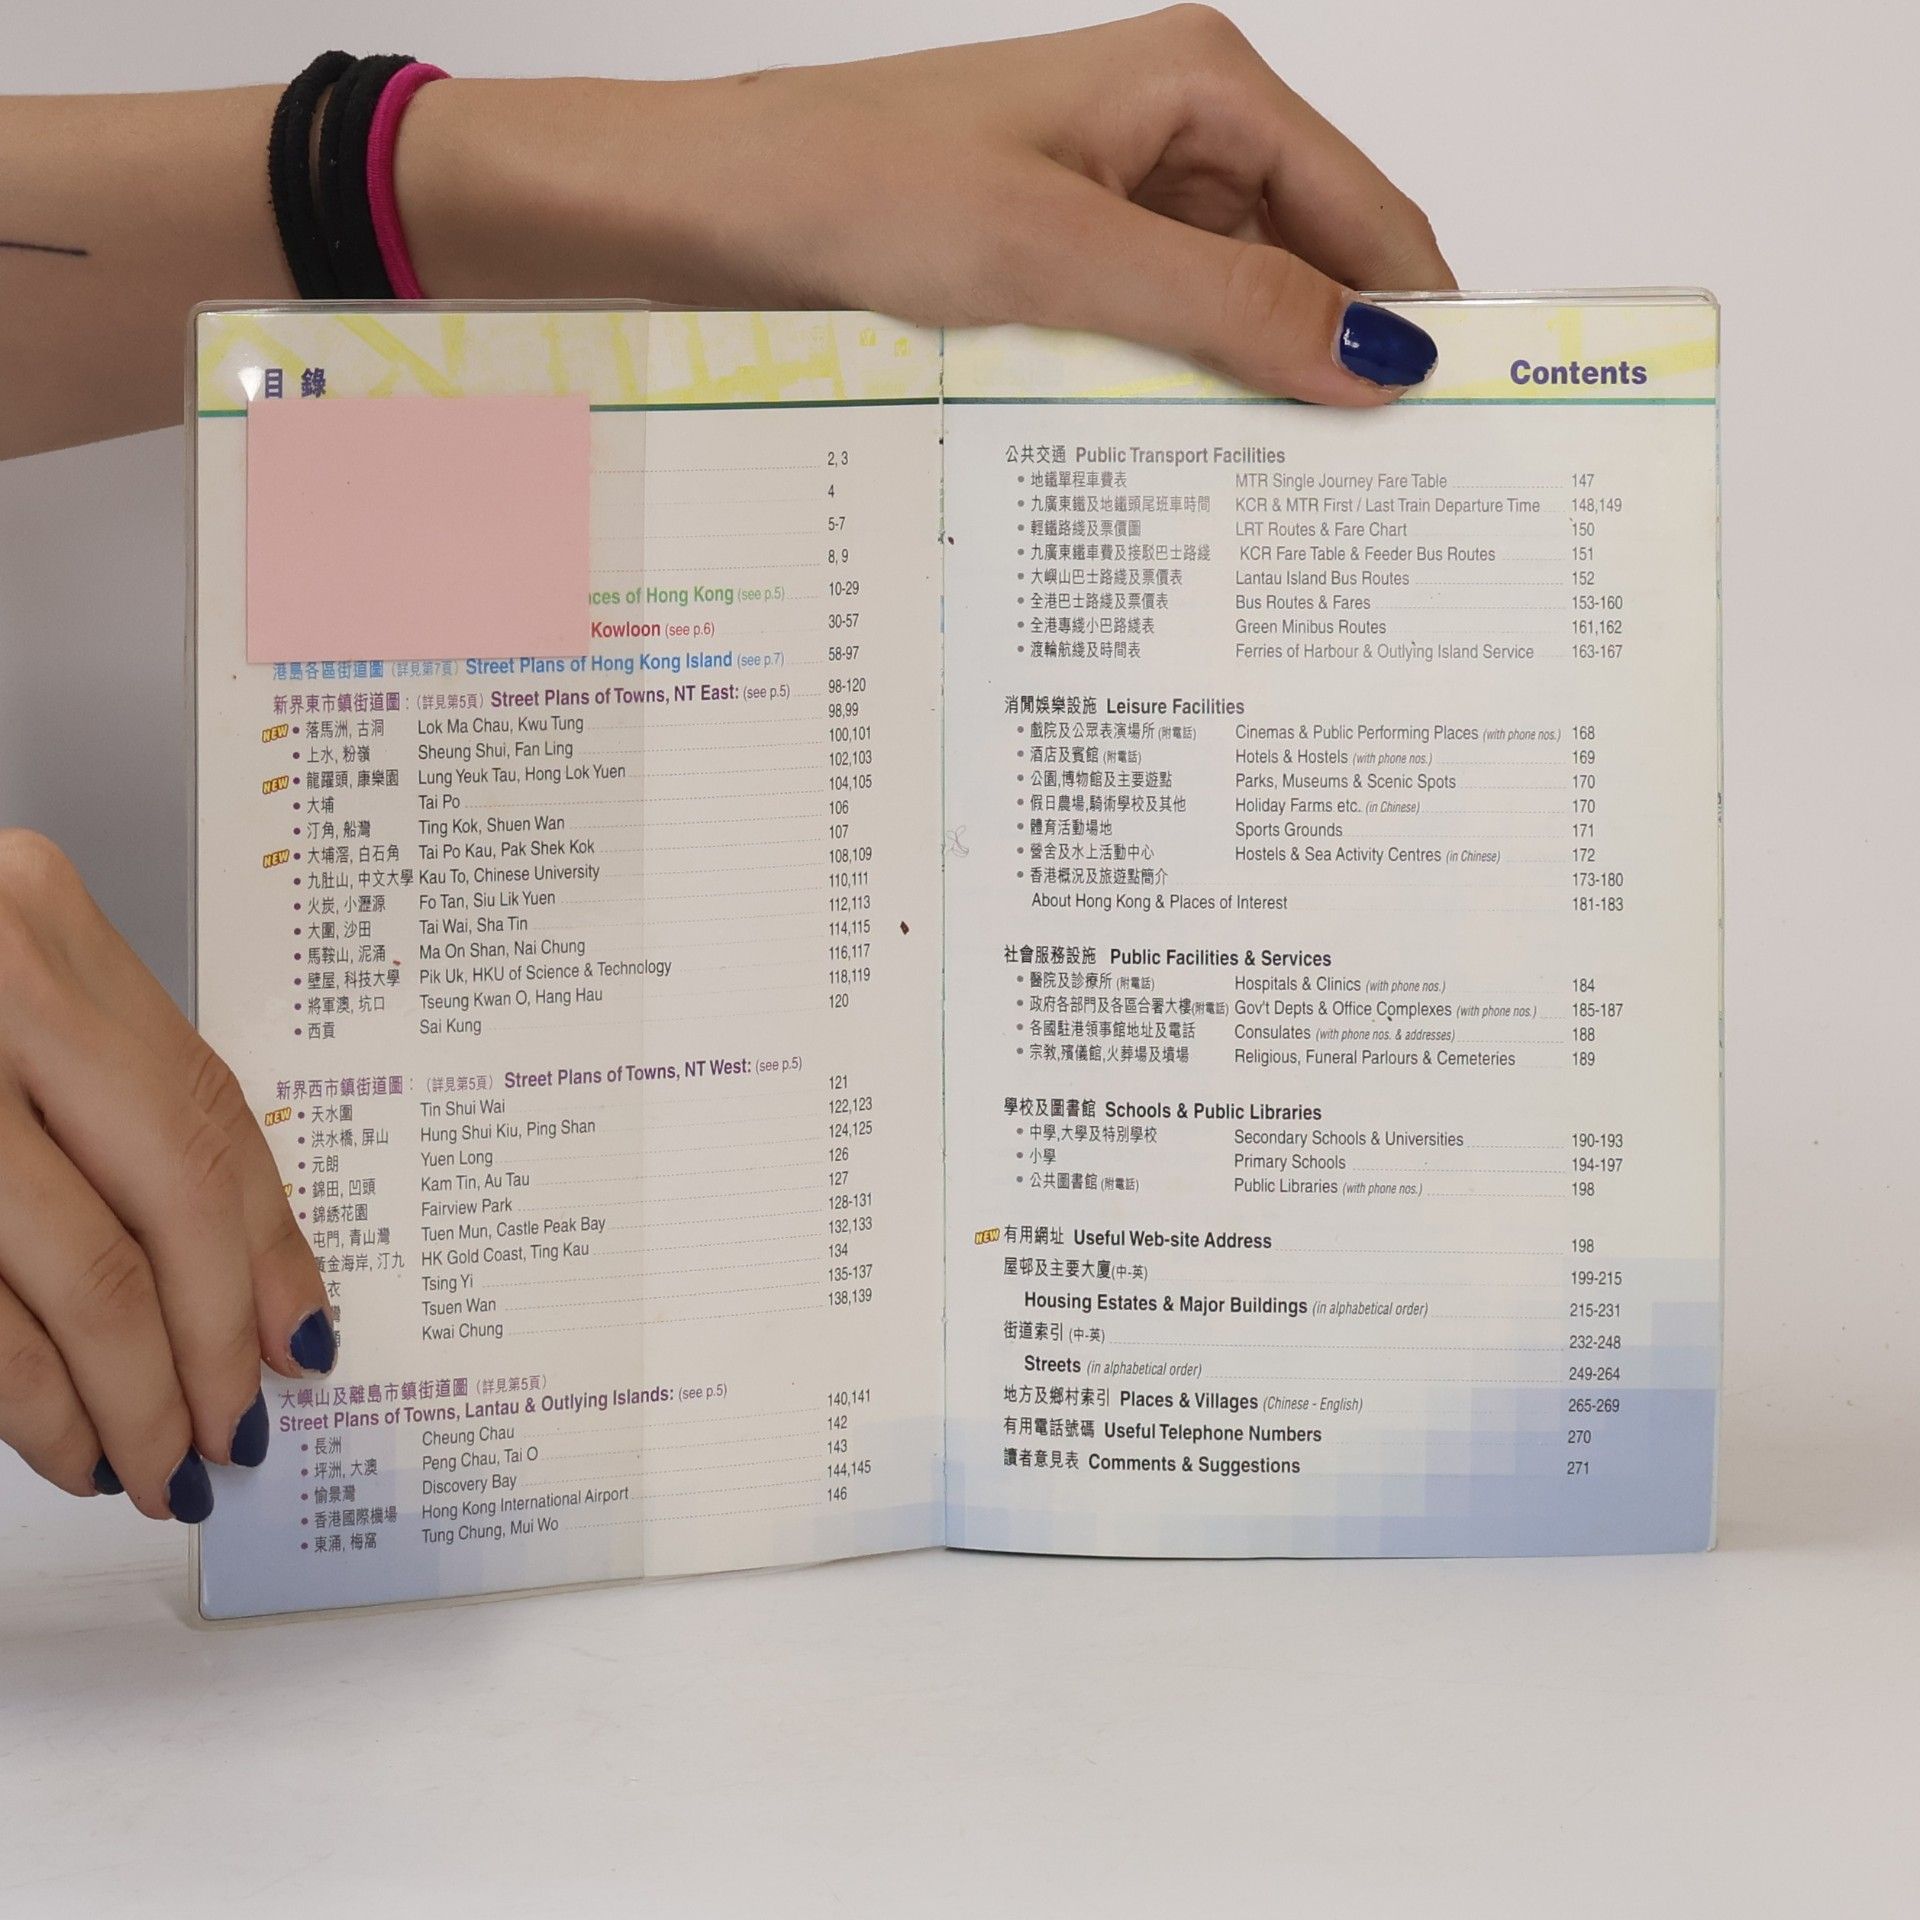 目 錄
2, 3
4
5-7
8, 9
of Hong Kong (see p.5) 10-29
Kowloon (see p.6) 30-57
港島各區街道圖 (詳見第7頁) Street Plans of Hong Kong Island (see p.7) 58-97
新界東市鎮街道圖: (詳見第5頁) Street Plans of Towns, NT East: (see p.5) 98-120
NEW • 落馬洲, 古洞 Lok Ma Chau, Kwu Tung 98,99
• 上水, 粉嶺 Sheung Shui, Fan Ling 100,101
NEW • 龍躍頭, 康樂園 Lung Yeuk Tau, Hong Lok Yuen 102,103
• 大埔 Tai Po 104,105
• 汀角, 船灣 Ting Kok, Shuen Wan 106
NEW • 大埔滘, 白石角 Tai Po Kau, Pak Shek Kok 107
• 九肚山, 中文大學 Kau To, Chinese University 108,109
• 火炭, 小瀝源 Fo Tan, Siu Lik Yuen 110,111
• 大圍, 沙田 Tai Wai, Sha Tin 112,113
• 馬鞍山, 泥涌 Ma On Shan, Nai Chung 114,115
• 壁屋, 科技大學 Pik Uk, HKU of Science & Technology 116,117
• 將軍澳, 坑口 Tseung Kwan O, Hang Hau 118,119
• 西貢 Sai Kung 120
新界西市鎮街道圖: (詳見第5頁) Street Plans of Towns, NT West: (see p.5)
NEW • 天水圍 Tin Shui Wai 121
• 洪水橋, 屏山 Hung Shui Kiu, Ping Shan 122,123
• 元朗 Yuen Long 124,125
• 錦田, 凹頭 Kam Tin, Au Tau 126
• 錦綉花園 Fairview Park 127
屯門, 青山灣 Tuen Mun, Castle Peak Bay 128-131
黃金海岸, 汀九 HK Gold Coast, Ting Kau 132,133
衣 Tsing Yi 134
灣 Tsuen Wan 135-137
Kwai Chung 138,139
大嶼山及離島市鎮街道圖 (詳見第5頁)
Street Plans of Towns, Lantau & Outlying Islands: (see p.5)
• 長洲 Cheung Chau 140,141
• 坪洲, 大澳 Peng Chau, Tai O 142
• 愉景灣 Discovery Bay 143
• 香港國際機場 Hong Kong International Airport 144,145
• 東涌, 梅窩 Tung Chung, Mui Wo 146
Contents
公共交通 Public Transport Facilities
• 地鐵單程車費表 MTR Single Journey Fare Table 147
• 九廣東鐵及地鐵頭尾班車時間 KCR & MTR First / Last Train Departure Time 148,149
• 輕鐵路綫及票價圖 LRT Routes & Fare Chart 150
• 九廣東鐵車費及接駁巴士路綫 KCR Fare Table & Feeder Bus Routes 151
• 大嶼山巴士路綫及票價表 Lantau Island Bus Routes 152
• 全港巴士路綫及票價表 Bus Routes & Fares 153-160
• 全港專綫小巴路綫表 Green Minibus Routes 161,162
• 渡輪航綫及時間表 Ferries of Harbour & Outlying Island Service 163-167
消閒娛樂設施 Leisure Facilities
• 戲院及公眾表演場所 (附電話) Cinemas & Public Performing Places (with phone nos.) 168
• 酒店及賓館 (附電話) Hotels & Hostels (with phone nos.) 169
• 公園,博物館及主要遊點 Parks, Museums & Scenic Spots 170
• 假日農場,騎術學校及其他 Holiday Farms etc. (in Chinese) 170
• 體育活動場地 Sports Grounds 171
• 營舍及水上活動中心 Hostels & Sea Activity Centres (in Chinese) 172
• 香港概況及旅遊點簡介 173-180
About Hong Kong & Places of Interest 181-183
社會服務設施 Public Facilities & Services
• 醫院及診療所 (附電話) Hospitals & Clinics (with phone nos.) 184
• 政府各部門及各區合署大樓(附電話) Gov't Depts & Office Complexes (with phone nos.) 185-187
• 各國駐港領事館地址及電話 Consulates (with phone nos. & addresses) 188
• 宗教,殯儀館,火葬場及墳場 Religious, Funeral Parlours & Cemeteries 189
學校及圖書館 Schools & Public Libraries
• 中學,大學及特別學校 Secondary Schools & Universities 190-193
• 小學 Primary Schools 194-197
• 公共圖書館 (附電話) Public Libraries (with phone nos.) 198
NEW 有用網址 Useful Web-site Address 198
屋邨及主要大廈(中-英) 199-215
Housing Estates & Major Buildings (in alphabetical order) 215-231
街道索引 (中-英) 232-248
Streets (in alphabetical order) 249-264
地方及鄉村索引 Places & Villages (Chinese - English) 265-269
有用電話號碼 Useful Telephone Numbers 270
讀者意見表 Comments & Suggestions 271